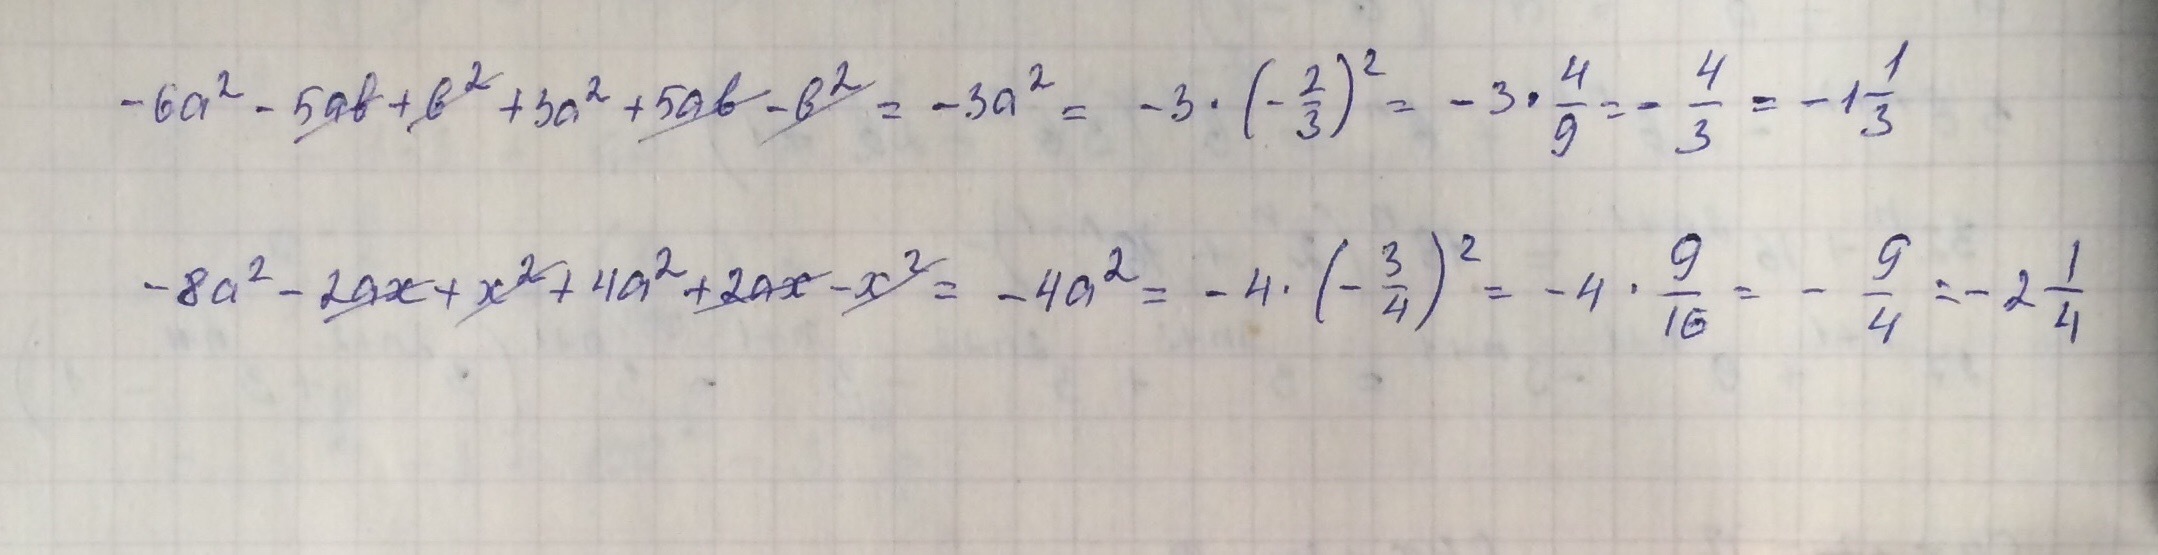 -6a² - 5ab + b² + 3a² + 5ab - b² = -3a² = -3 · (-2/3)² = -3 · 4/9 = -4/3 = -1 1/3
-8a² - 2ax + x² + 4a² + 2ax - x² = -4a² = -4 · (-3/4)² = -4 · 9/16 = -9/4 = -2 1/4